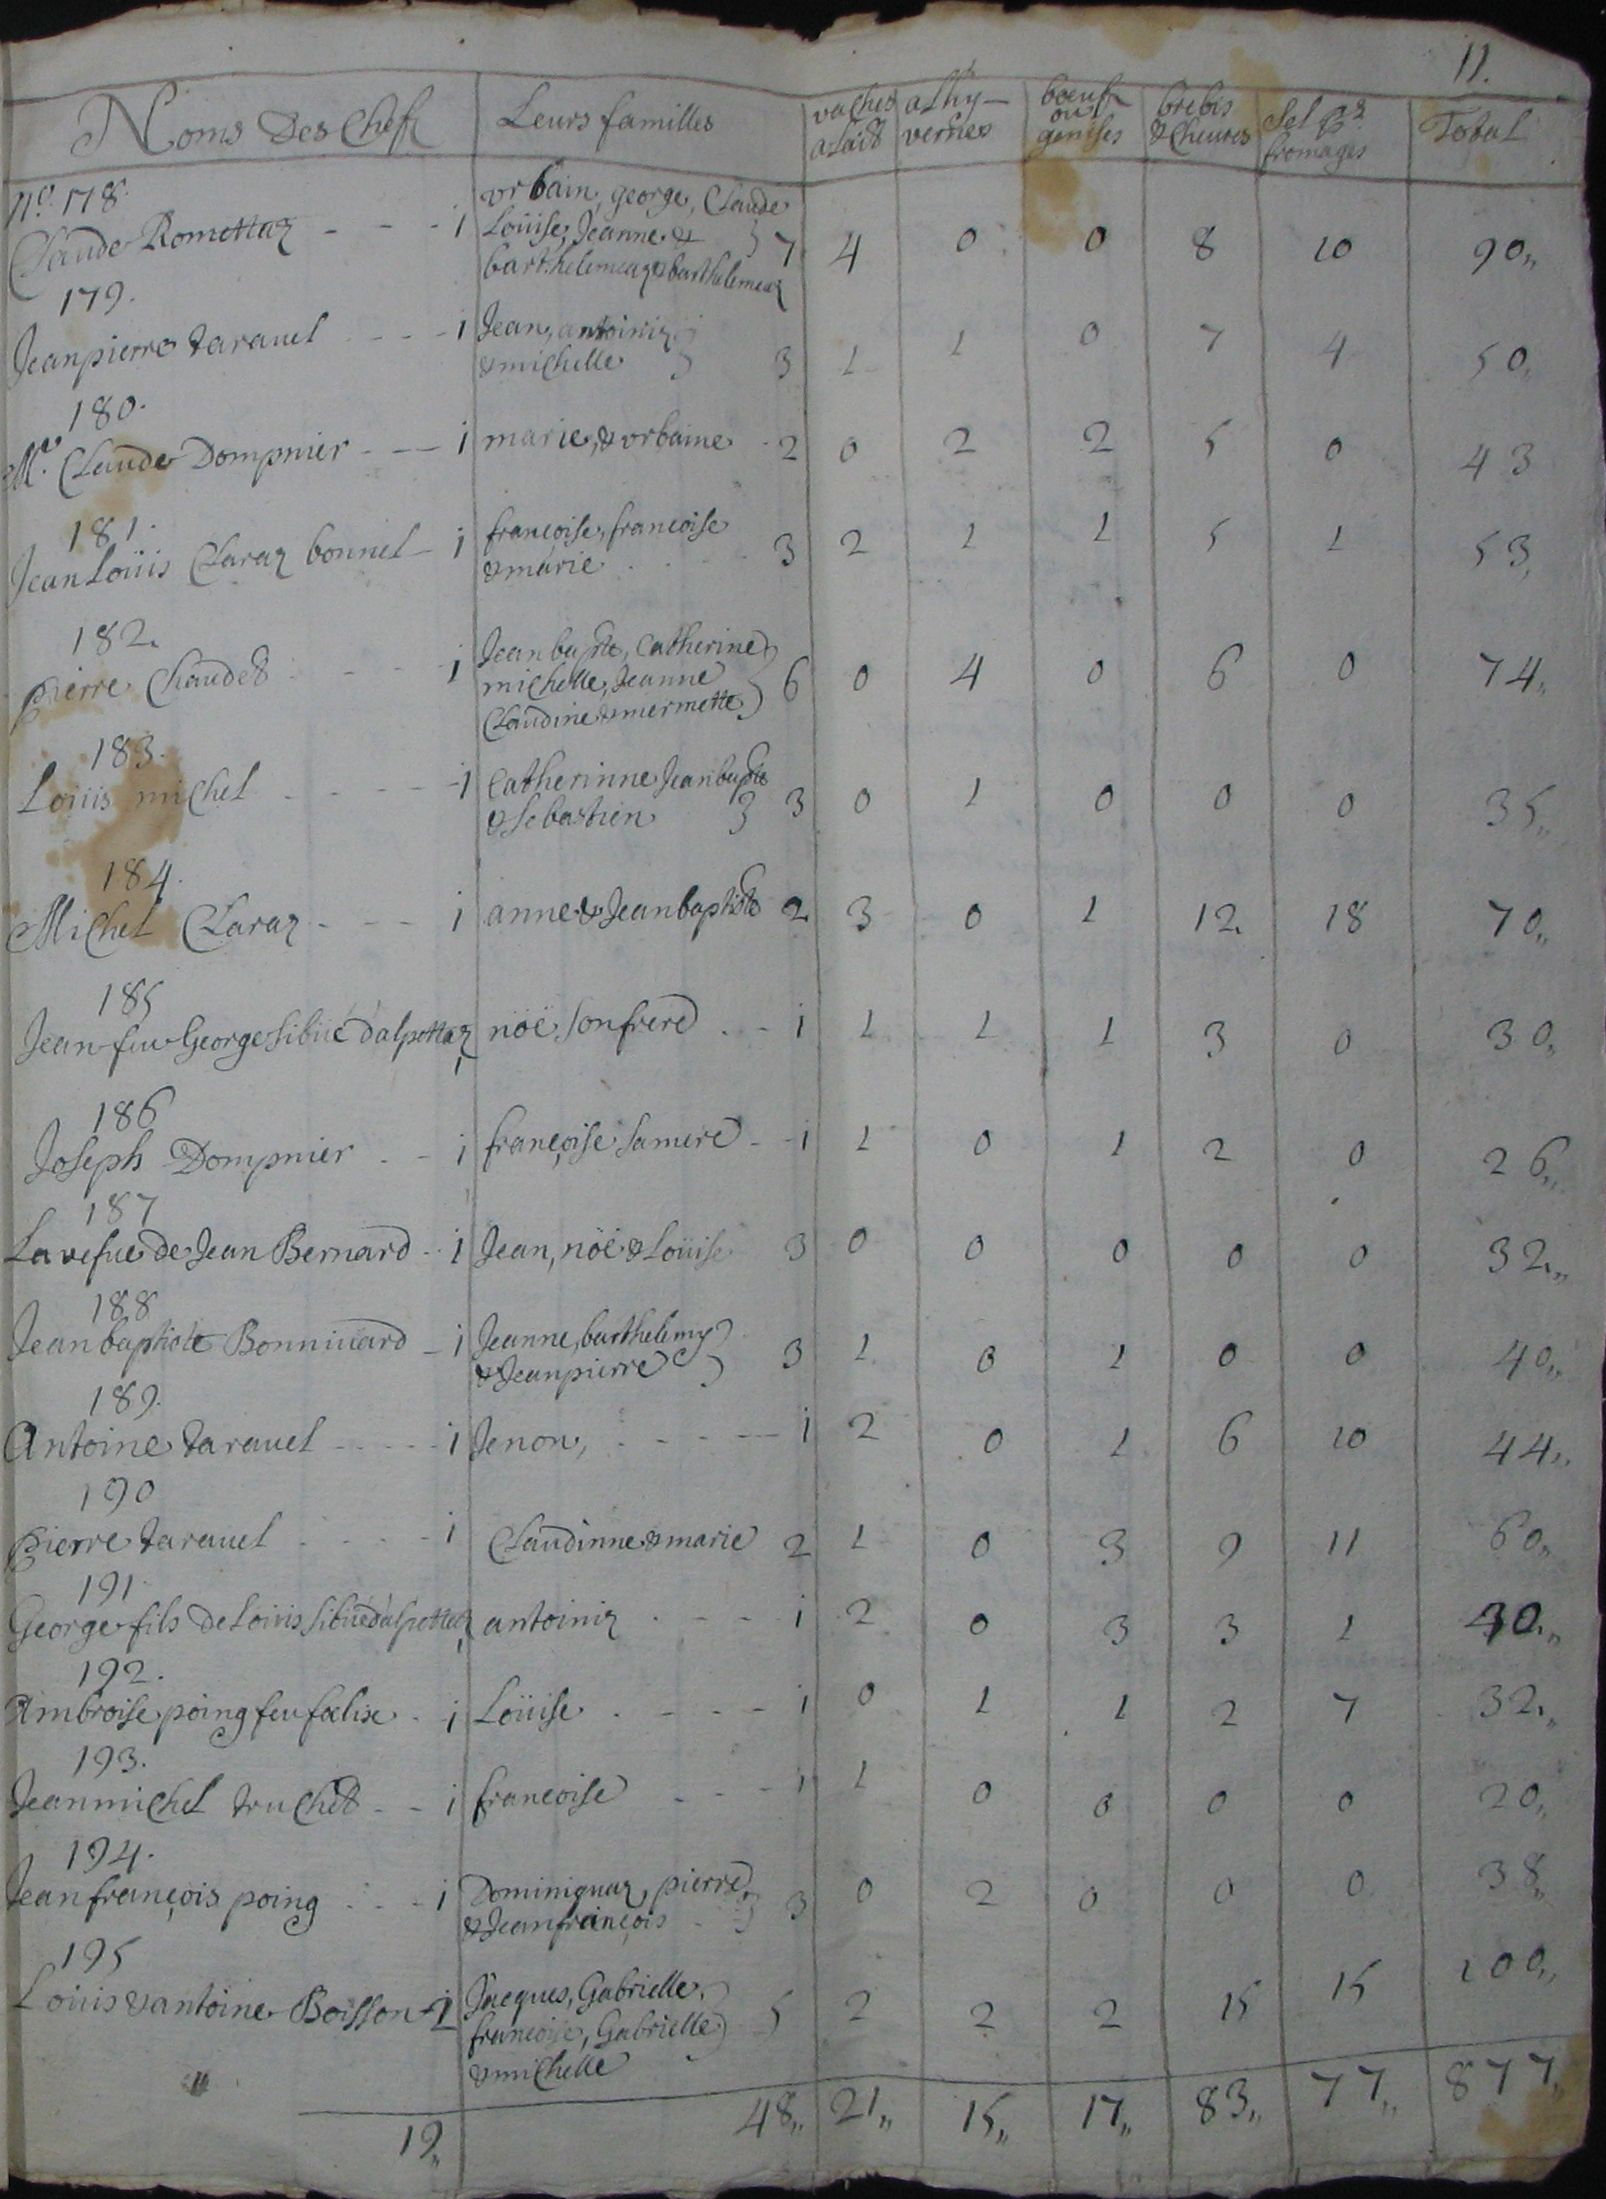 11.
Noms Des Chefs | Leurs familles | vaches a Laid | a Lhy-vernes | boeufs ou genises | brebis & Cheures | Sel pr. fromages | Total
No. 178.
Claude Romettaz - - - 1 | vrbain, george, Claude
Loüise, Jeanne & } 7 | 4 | 0 | 0 | 8 | 10 | 90,,
barthelemeaz & barthelemeaz
179.
Jean pierre tarauel - - - 1 | Jean, antoiniz
& michelle } 3 | 1 | 1 | 0 | 7 | 4 | 50,,
180.
Mr. Claude Dompnier - - - 1 | marie, & vrbaine - 2 | 0 | 2 | 2 | 5 | 0 | 43
181.
Jean Loüis Claraz bonnel - 1 | francoise, francoise
& marie . . . 3 | 2 | 1 | 1 | 5 | 1 | 53,
182.
pierre Chaudet - - - 1 | Jean bapte, Catherine
michelle, Jeanne } 6 | 0 | 4 | 0 | 6 | 0 | 74,,
Claudine & mermette
183.
Loüis michel - - - - 1 | Catherinne Jean bapte
& Sebastien } 3 | 0 | 1 | 0 | 0 | 0 | 35,,
184.
Michel Claraz - - - 1 | anne & Jean baptiste 2 | 3 | 0 | 1 | 12. | 18 | 70,,
185
Jean feu George Sibüé d'alpettaz 1 | nöé son frere . - 1 | 1 | 1 | 1 | 3 | 0 | 30,,
186
Joseph Dompnier . - 1 | françoise sa mere - - 1 | 1 | 0 | 1 | 2 | 0 | 26,,
187
La vefue de Jean Bernard - 1 | Jean, nöé & Loüise 3 | 0 | 0 | 0 | 0 | 0 | 32,,
188
Jean baptiste Bonniuard - 1 | Jeanne, barthelemy
& Jean pierre } 3 | 1 | 0 | 1 | 0 | 0 | 40,,
189.
Antoine tarauel - - - - 1 | Jenon, - - - - 1 | 2 | 0 | 1 | 6 | 10 | 44,,
190
pierre tarauel - - - 1 | Claudinne & marie 2 | 1 | 0 | 3 | 9 | 11 | 60,,
191.
George fils de Loüis Sibüé d'alpettaz 1 | antoiniz . - - - 1 | 2 | 0 | 3 | 3 | 1 | 40,,
192.
Ambroise poing feu foelix . 1 | Loüise . - - - 1 | 0 | 1 | 1 | 2 | 7 | 32,,
193.
Jean michel truchet - - 1 | francoise - - - 1 | 1 | 0 | 0 | 0 | 0 | 20,,
194.
Jean françois poing . - - 1 | Dominiquaz, pierre
& Jean françois } 3 | 0 | 2 | 0 | 0 | 0 | 38,,
195
Loüis & antoine Boisson - 2 | Jacques, Gabrielle,
francoise, Gabrielle } 5 | 2 | 2 | 2 | 15 | 15 | 100,,
& michelle
19,, | 48,, | 21,, | 15,, | 17,, | 83,, | 77,, | 877,,